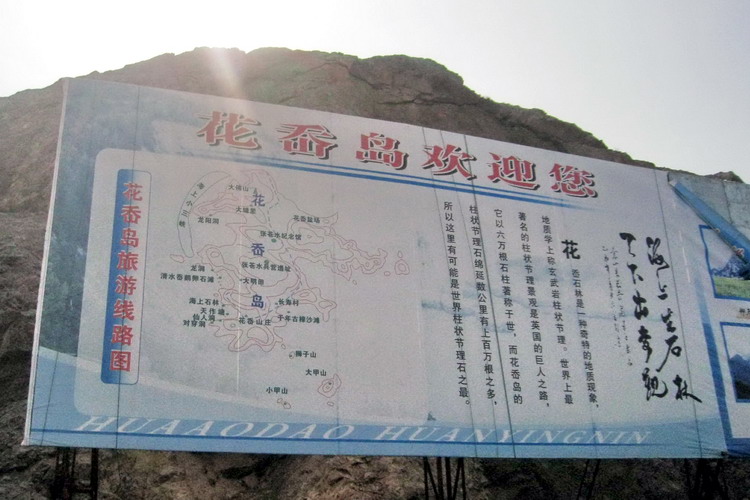 花岙岛欢迎您
花岙岛旅游线路图
大佛山
花岙岛
花岙盐场
龙阳洞
龙洞
张苍水兵营遗址
清水岙鹅卵石滩
大明岙
海上石林
长海村
天作塘
仙人洞
千年古樟沙滩
对穿洞
花岙山庄
狮子山
大甲山
小甲山
花岙石林是一种奇特的地质现象,
地质学上称玄武岩柱状节理。世界上最
著名的柱状节理景观是英国的巨人之路,
它以六万根石柱著称于世,而花岙岛的
柱状节理石绵延数公里有上百万根之多,
所以这里有可能是世界柱状节理石之最。
海上生石林
HUAAODAO HUANYINGNIN